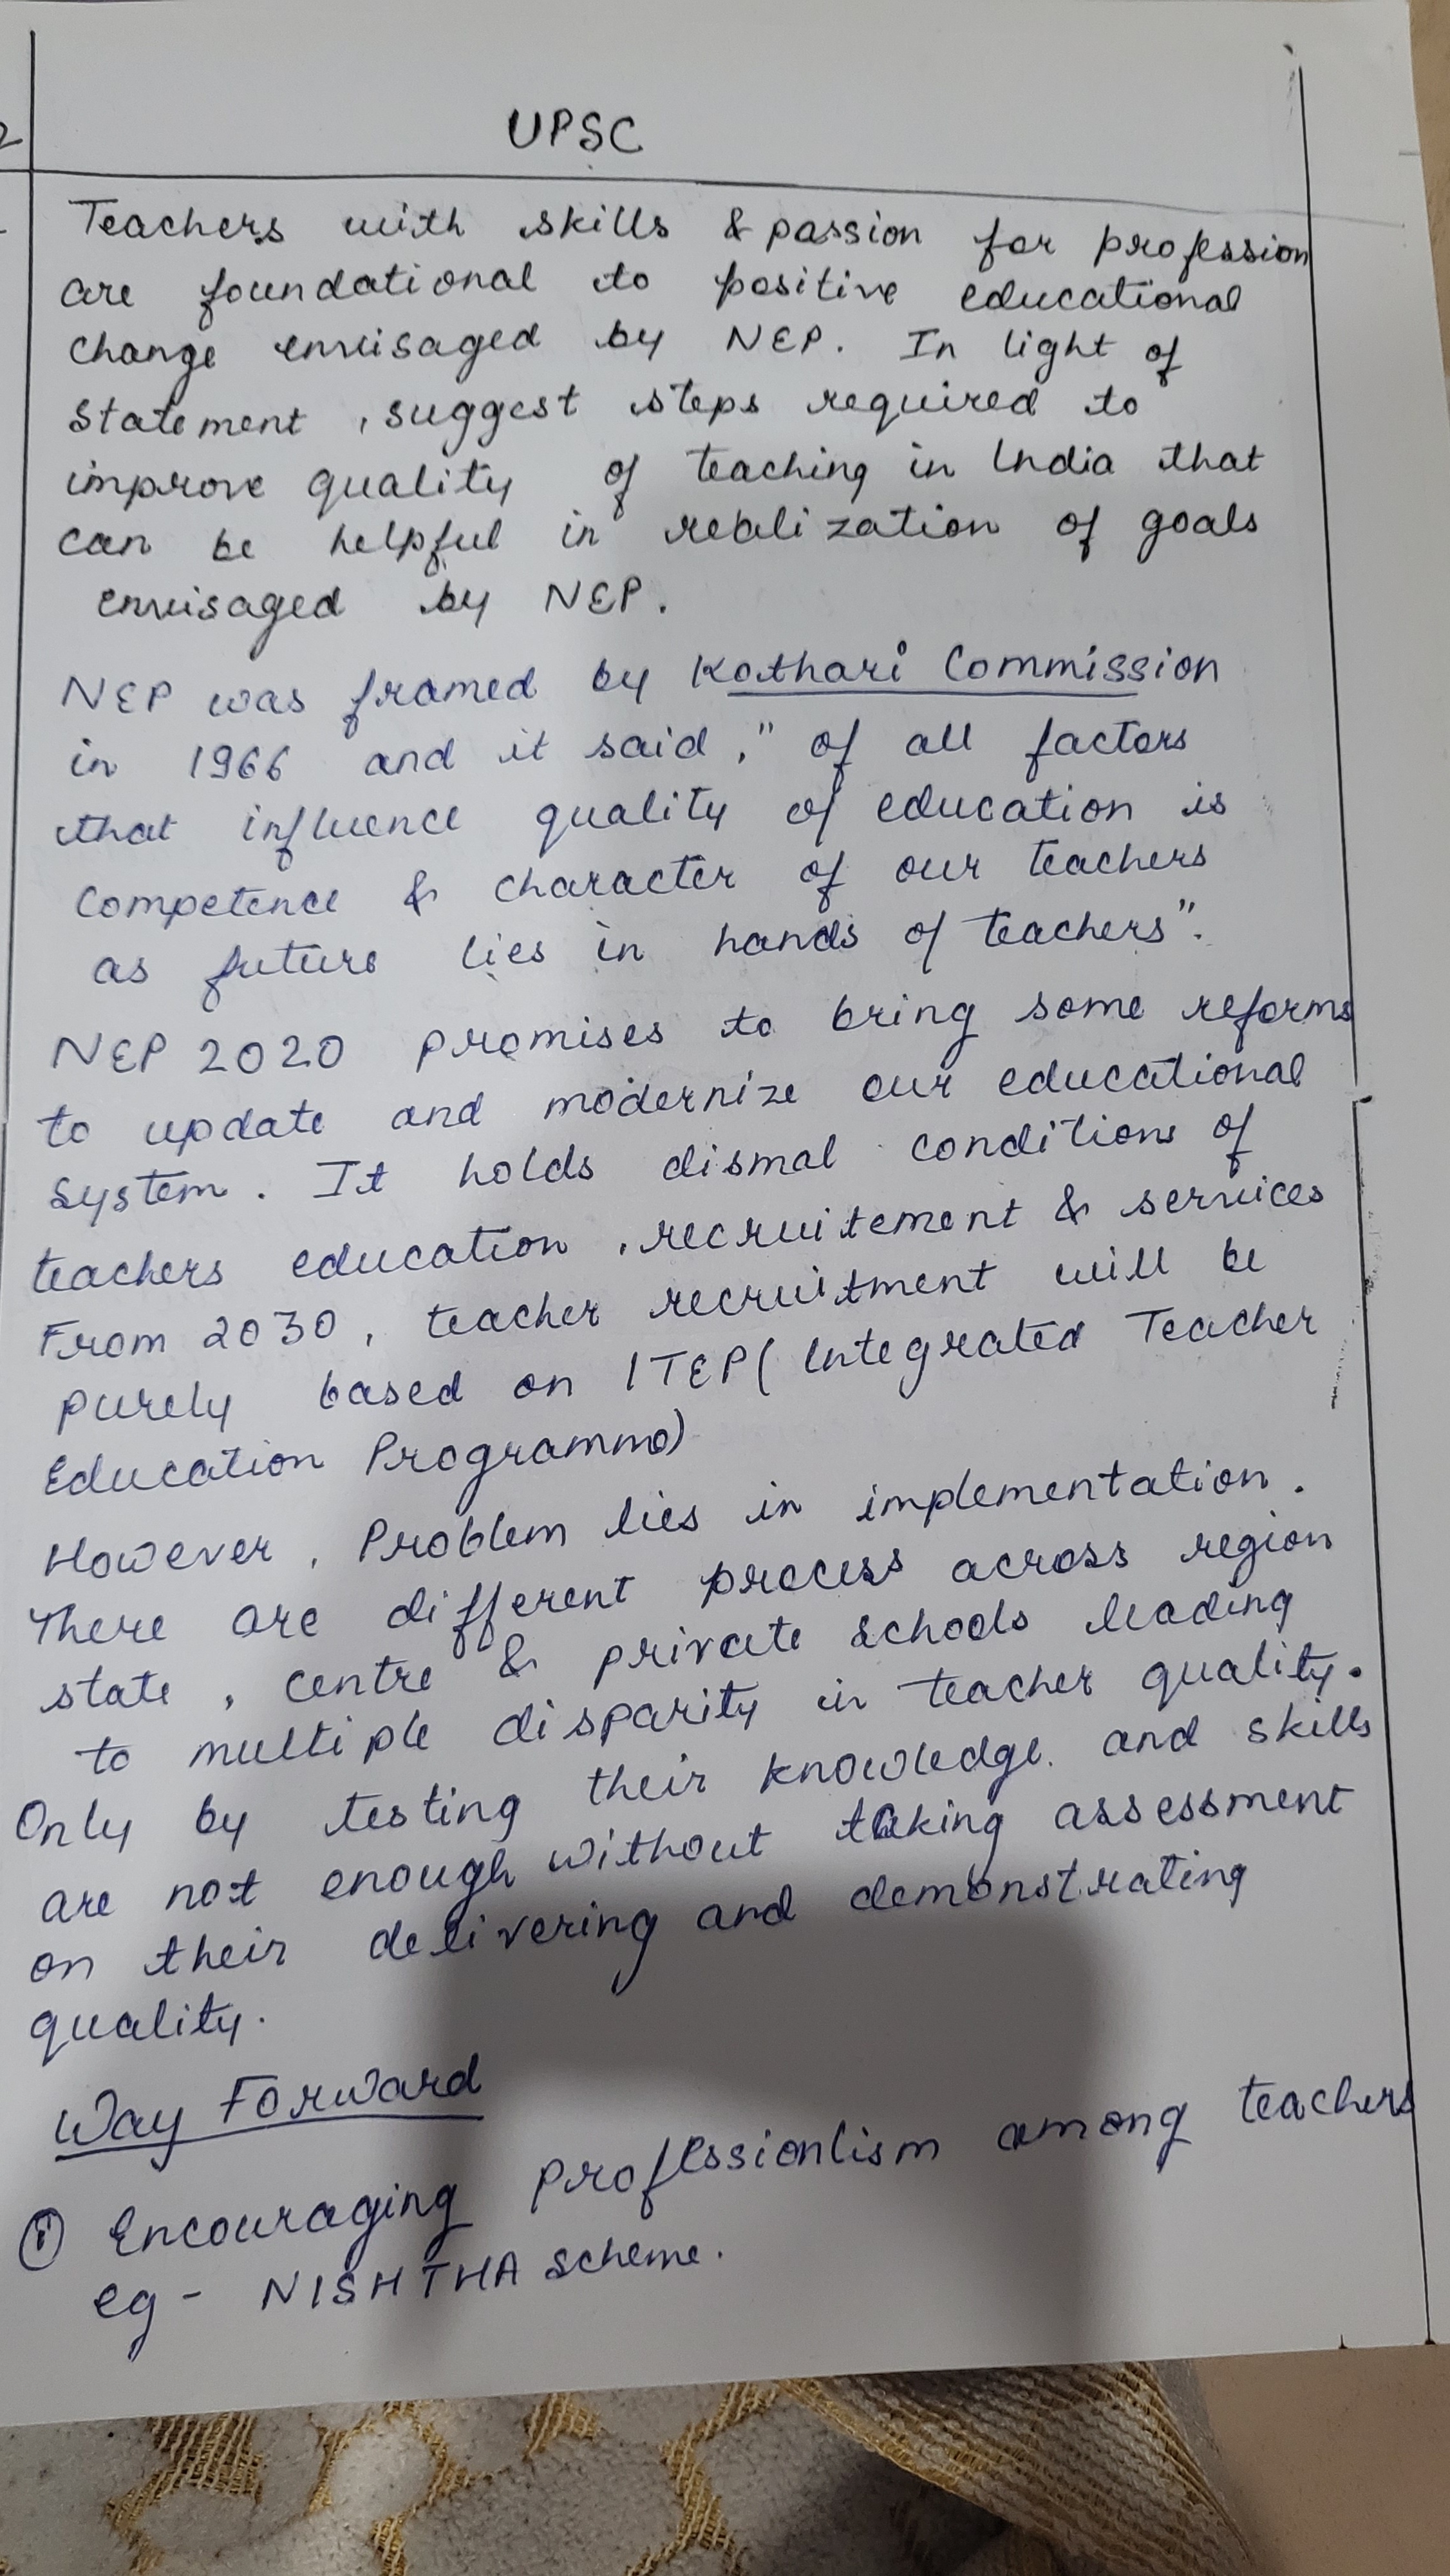 UPSC
Teachers with skills & passion for profession
are foundational to positive educational
change envisaged by NEP. In light of
statement, suggest steps required to
improve quality of teaching in India that
can be helpful in realization of goals
envisaged by NEP.
NEP was framed by Kothari Commission
in 1966 and it said, "of all factors
that influence quality of education is
competence & character of our teachers
as future lies in hands of teachers".
NEP 2020 promises to bring some reforms
to update and modernize our educational
system. It holds dismal conditions of
teachers education, recruitement & services
From 2030, teacher recruitment will be
purely based on ITEP (Integrated Teacher
Education Programme)
However, Problem lies in implementation.
There are different process across region
state, centre & private schools leading
to multiple disparity in teacher quality.
Only by testing their knowledge and skills
are not enough without taking assessment
on their delivering and demonstrating
quality.
Way Forward
(i) Encouraging Professionlism among teachers
eg - NISHTHA scheme.